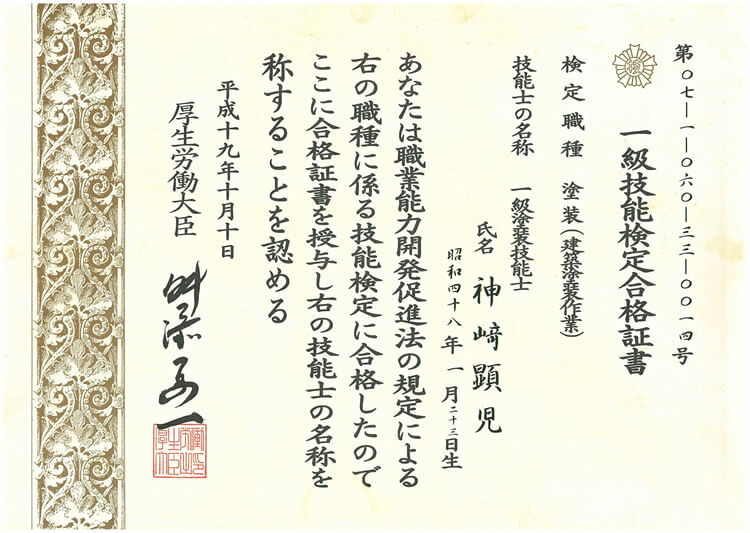 第〇七―一―〇六〇―三三―〇〇一四号
一級技能検定合格証書
検定職種 塗装(建築塗装作業)
技能士の名称 一級塗装技能士
氏名 神﨑顕児
昭和四十八年一月二十三日生
あなたは職業能力開発促進法の規定による
右の職種に係る技能検定に合格したので
ここに合格証書を授与し右の技能士の名称を
称することを認める
平成十九年十月十日
厚生労働大臣 舛添要一